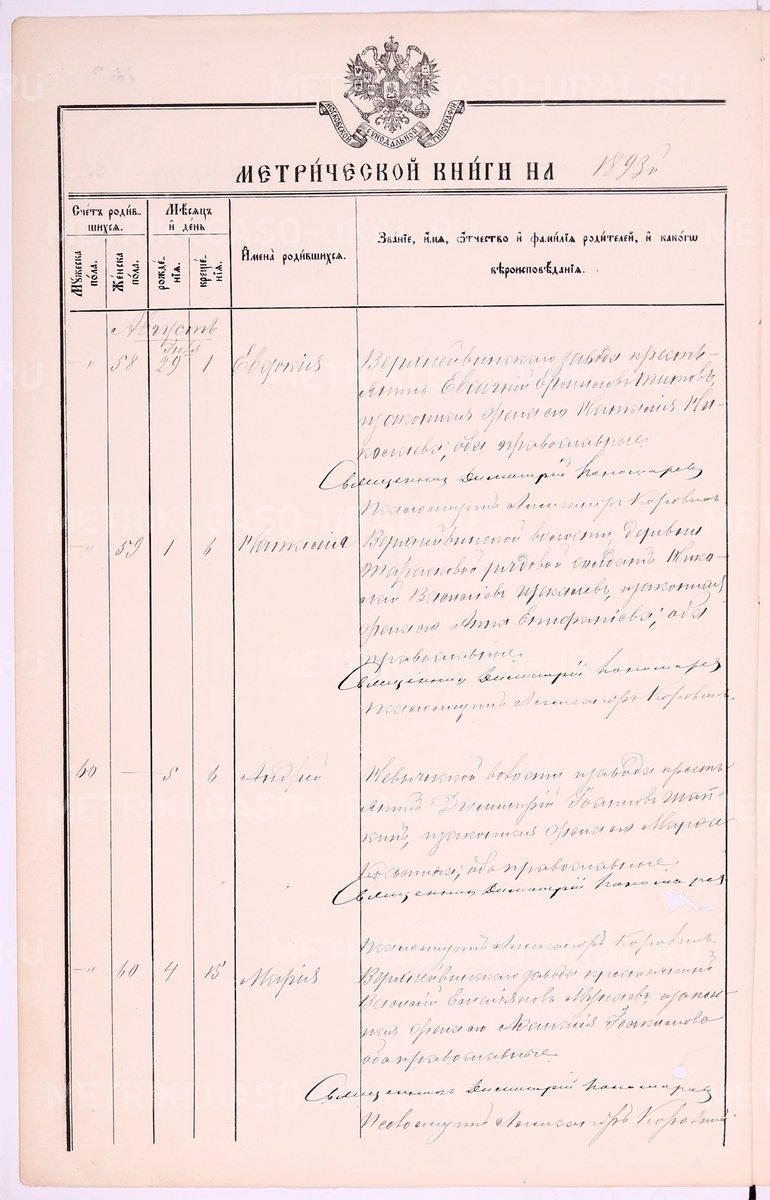 МОСКОВСКОЙ СѴНОДАЛЬНОЙ ТИПОГРАФІИ
МЕТРИЧЕСКОЙ КНИГИ НА 1893й
Счетъ родившихся.
Мѣсяцъ и день
Мужеска пола.
Женска пола.
рожденія.
крещенія.
Имена родившихся.
Званіе, имя, отчество и фамилія родителей, и какого вѣроисповѣданія.
Августъ
Іюля
" 58 29 1 Евдокія
Верхнейвинскаго завода кресть-
янинъ Титовъ,
законная жена его Наталія Ни-
колаева, оба православные.
Священникъ Димитрій Пономаревъ
Псаломщикъ Александръ Коровинъ.
" 59 1 6 Наталія
Верхнейвинской волости, деревни
Тарасковой рядовой солдатъ Нико-
лай Васильевъ законная
жена его Анна Епифаніева, оба
православные.
Священникъ Димитрій Пономаревъ
Псаломщикъ Александръ Коровинъ.
60 — 5 6 Андрей
волости завода кресть-
янинъ Димитрій Іоанновъ
законная жена его Марѳа
оба православные.
Священникъ Димитрій Пономаревъ
Псаломщикъ Александръ Коровинъ.
" 60 4 15 Марія
Верхнейвинскаго завода крестьянинъ
Василій Емельяновъ закон-
ная жена его
оба православные.
Священникъ Димитрій Пономаревъ
Псаломщикъ Александръ Коровинъ
METRIKI.GASO-URAL.RU